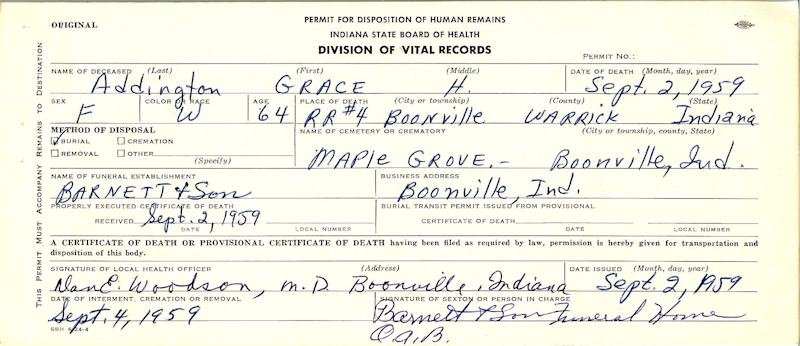 ORIGINAL
PERMIT FOR DISPOSITION OF HUMAN REMAINS
INDIANA STATE BOARD OF HEALTH
DIVISION OF VITAL RECORDS
PERMIT NO.:
THIS PERMIT MUST ACCOMPANY REMAINS TO DESTINATION
NAME OF DECEASED (Last) (First) (Middle) DATE OF DEATH (Month, day, year)
Addington GRACE H. Sept. 2, 1959
SEX COLOR OR RACE AGE PLACE OF DEATH (City or township) (County) (State)
F W 64 RR#4 Boonville WARRICK Indiana
METHOD OF DISPOSAL NAME OF CEMETERY OR CREMATORY (City or township, county, State)
BURIAL CREMATION
REMOVAL OTHER MAPle GROVE.- Boonville, Ind.
(Specify)
NAME OF FUNERAL ESTABLISHMENT BUSINESS ADDRESS
BARNETT & Son Boonville, Ind.
PROPERLY EXECUTED CERTIFICATE OF DEATH BURIAL TRANSIT PERMIT ISSUED FROM PROVISIONAL
RECEIVED Sept. 2, 1959 CERTIFICATE OF DEATH
DATE LOCAL NUMBER DATE LOCAL NUMBER
A CERTIFICATE OF DEATH OR PROVISIONAL CERTIFICATE OF DEATH having been filed as required by law, permission is hereby given for transportation and
disposition of this body.
SIGNATURE OF LOCAL HEALTH OFFICER (Address) DATE ISSUED (Month, day, year)
Dan E. Woodson, M.D. Boonville, Indiana Sept. 2, 1959
DATE OF INTERMENT, CREMATION OR REMOVAL SIGNATURE OF SEXTON OR PERSON IN CHARGE
Sept. 4, 1959 Barnett & Son Funeral Home
O.a.B.